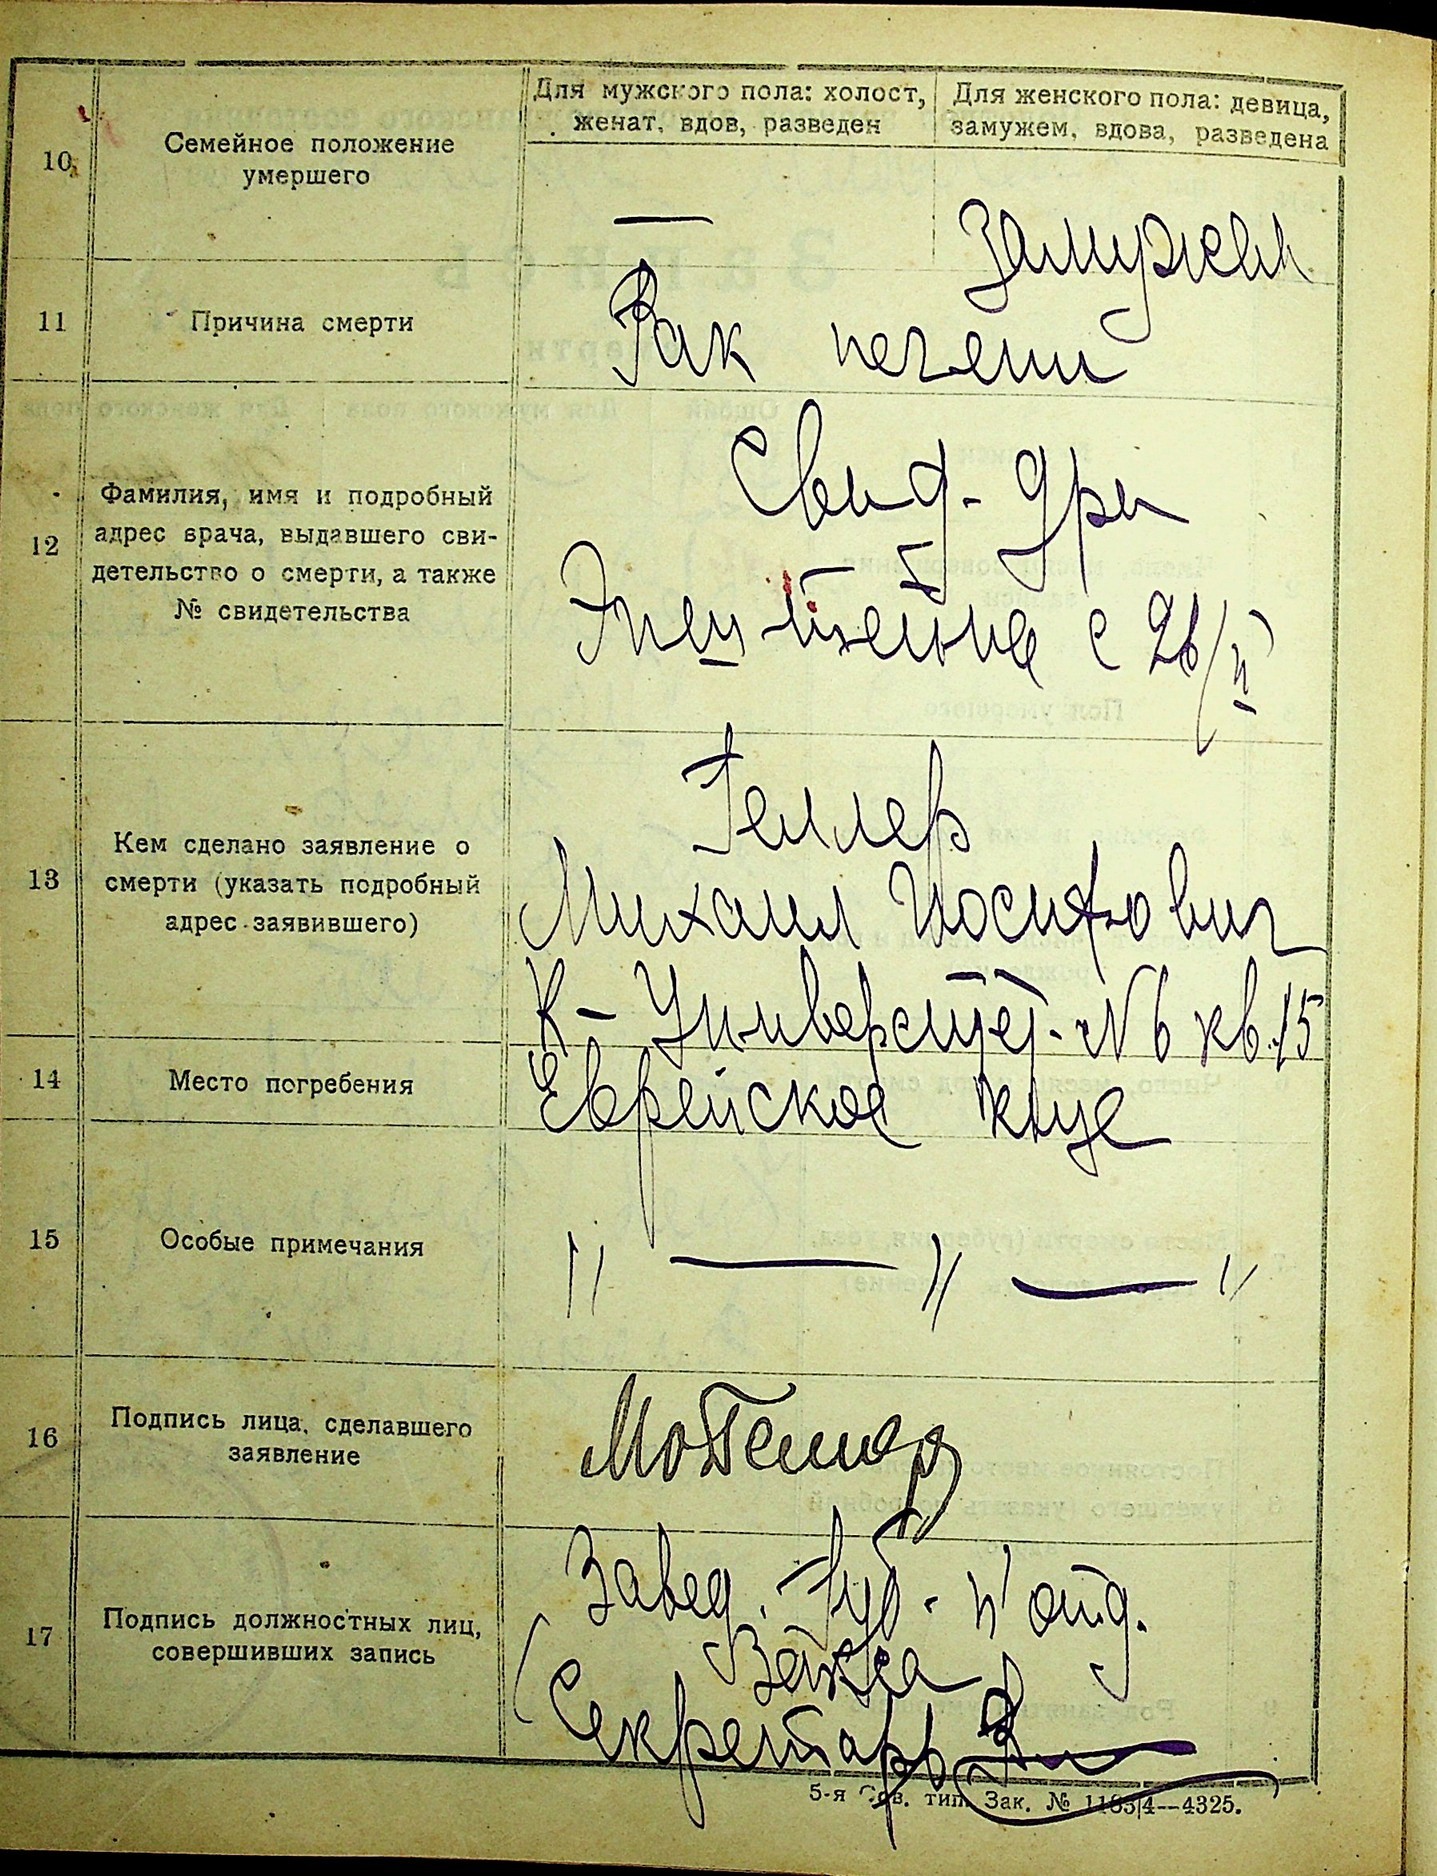 10
Семейное положение
умершего
Для мужского пола: холост,
женат, вдов, разведен
Для женского пола: девица,
замужем, вдова, разведена
—
Замужем
11
Причина смерти
Рак печени
12
Фамилия, имя и подробный
адрес врача, выдавшего сви-
детельство о смерти, а также
№ свидетельства
Свид- Дра
Эпештейна с 26/II
13
Кем сделано заявление о
смерти (указать подробный
адрес заявившего)
Геллер
Михаил Иосифович
К- Университет. № 6 кв. 15
14
Место погребения
Еврейское кще
15
Особые примечания
〃 — 〃 — 〃
16
Подпись лица, сделавшего
заявление
Геллер
17
Подпись должностных лиц,
совершивших запись
Завед. Губ- п'отд.
Секретарь
5-я Сов. тип. Зак. № 1185|4—4325.